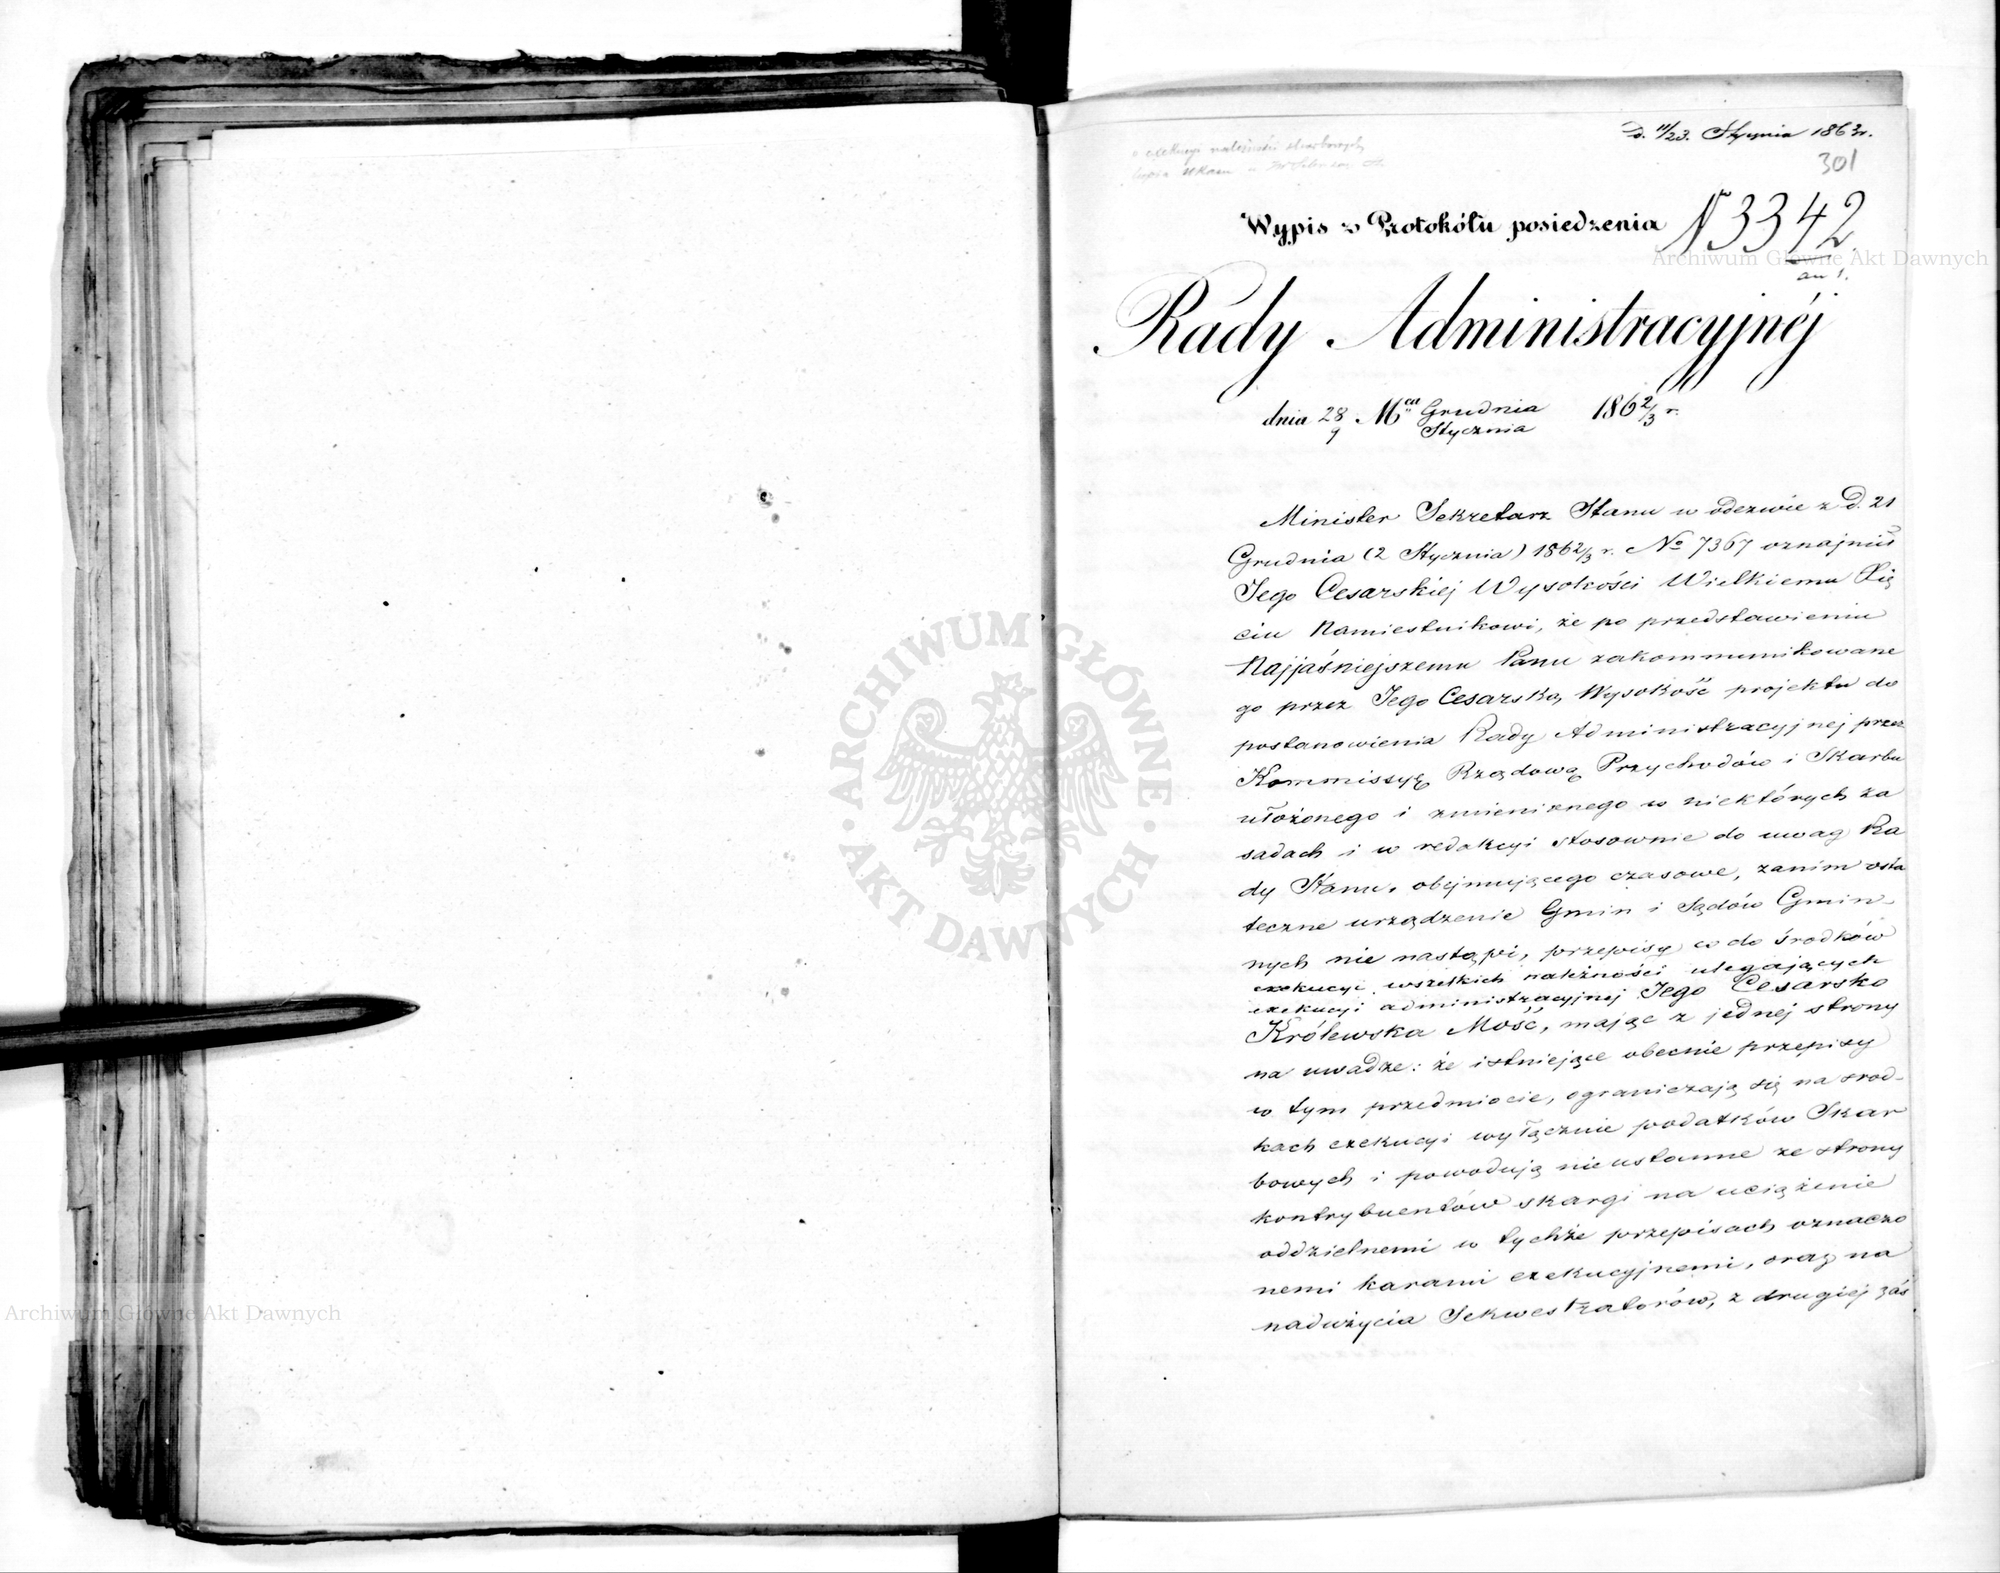 D. 11/23. Stycznia 1863 r.
301
Wypis z Protokółu posiedzenia N 3342
Rady Administracyjnéj
dnia 28/9 Mca Grudnia/Stycznia 1862/3 r.
Minister Sekretarz Stanu w odezwie z D. 21
Grudnia (2 Stycznia) 1862/3 r. No 7367 oznajmił
Jego Cesarskiej Wysokości Wielkiemu Xię
ciu Namiestnikowi, że po przedstawieniu
Najjaśniejszemu Panu zakommunikowane
go przez Jego Cesarską Wysokość projektu do
postanowienia Rady Administracyjnej przez
Kommissyę Rządową Przychodów i Skarbu
ułożonego i zmienionego w niektórych za
sadach i w redakcyi stosownie do uwag Ra
dy Stanu, obejmującego czasowe, zanim osta
teczne urządzenie Gmin i Sądów Gmin-
nych nie nastąpi, przepisy co do środków
exekucyi wszelkich należności ulegających
exekucyi administracyjnej Jego Cesarsko
Królewska Mość, mając z jednej strony
na uwadze: że istniejące obecnie przepisy
w tym przedmiocie, ograniczają się na srod-
kach exekucyi wyłącznie podatków Skar
bowych i powodują nieustanne ze strony
kontrybuentów skargi na uciążenie
oddzielnemi w tychże przepisach oznaczo
nemi karami exekucyjnemi, oraz na
nadużycia Sekwestratorów, z drugiej zaś
Archiwum Główne Akt Dawnych
ARCHIWUM GŁÓWNE
AKT DAWNYCH
Archiwum Główne Akt Dawnych